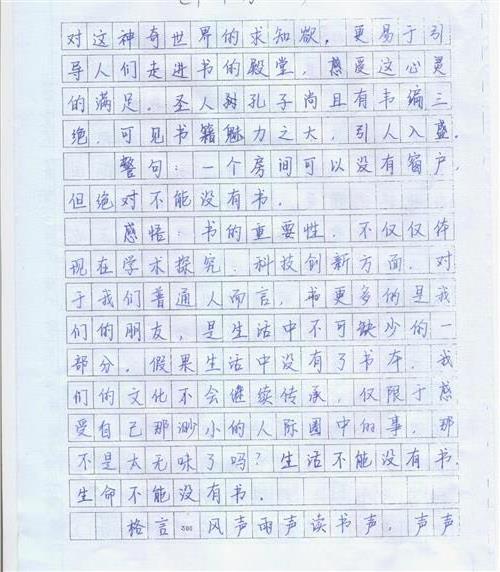 对这神奇世界的求知欲，更易于引
导人们走进书的殿堂，感受这心灵
的满足。圣人孔子尚且有韦编三
绝，可见书籍魅力之大，引人入盛。
警句：一个房间可以没有窗户，
但绝对不能没有书。
感悟：书的重要性，不仅仅体
现在学术探究、科技创新方面，对
于我们普通人而言，书更多的是我
们的朋友，是生活中不可缺少的一
部分。假果生活中没有了书本，我
们的文化不会继续传承，仅限于感
受自己那渺小的人际圈中的事，那
不是太无味了吗？生活不能没有书，
生命不能没有书。
格言：300 风声雨声读书声，声声